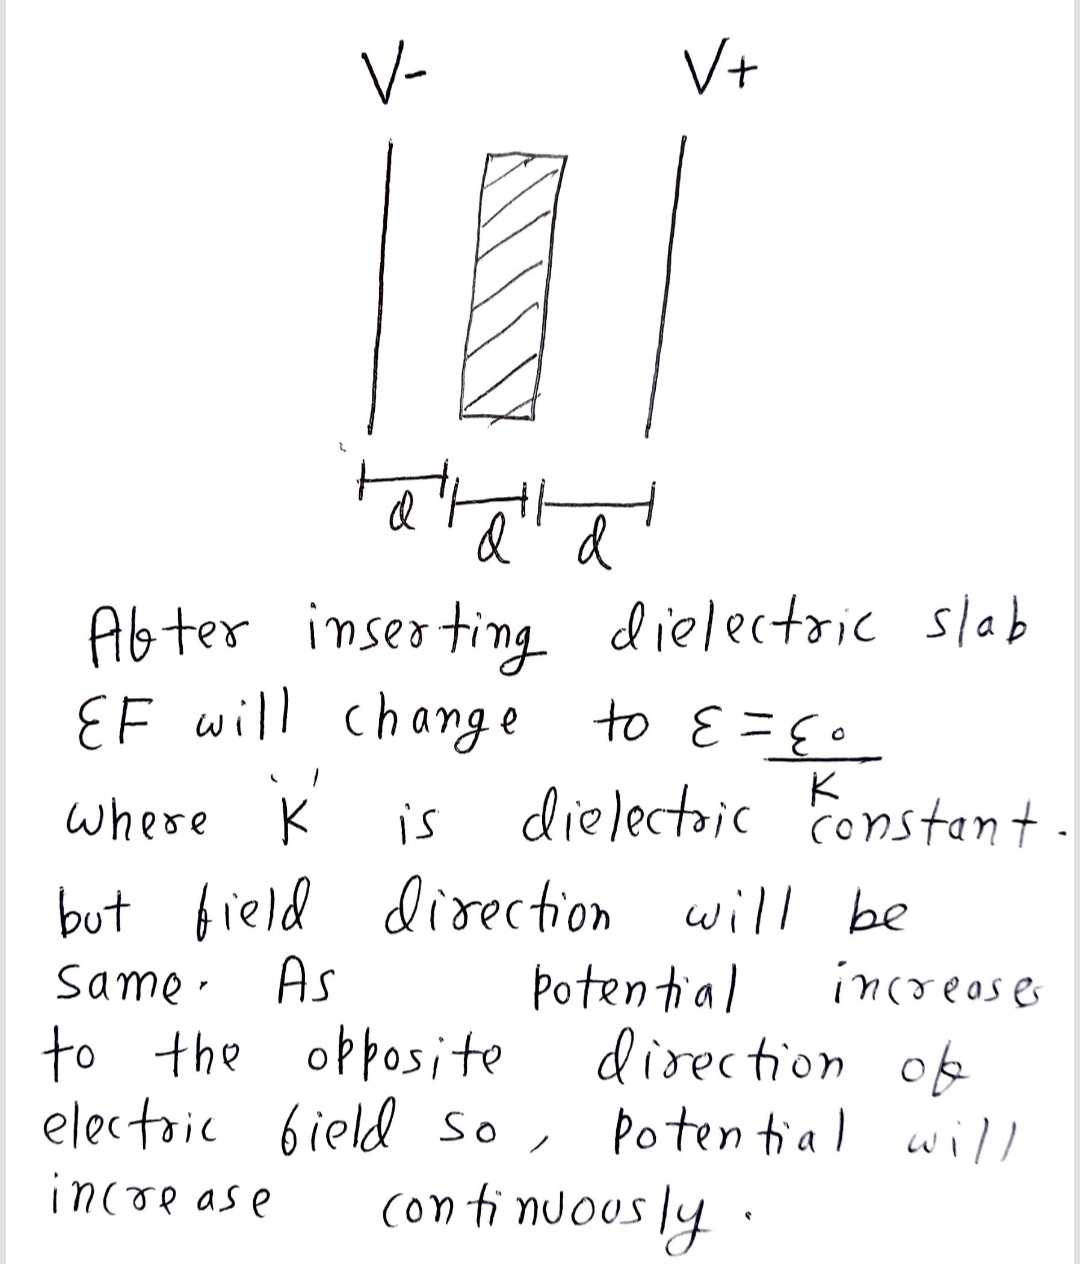 V- V+
d d d
After inserting dielectric slab
EF will change to ε = ε₀/K
where 'K' is dielectric constant.
but field direction will be
same. As potential increases
to the opposite direction of
electric field so, potential will
increase continuously.